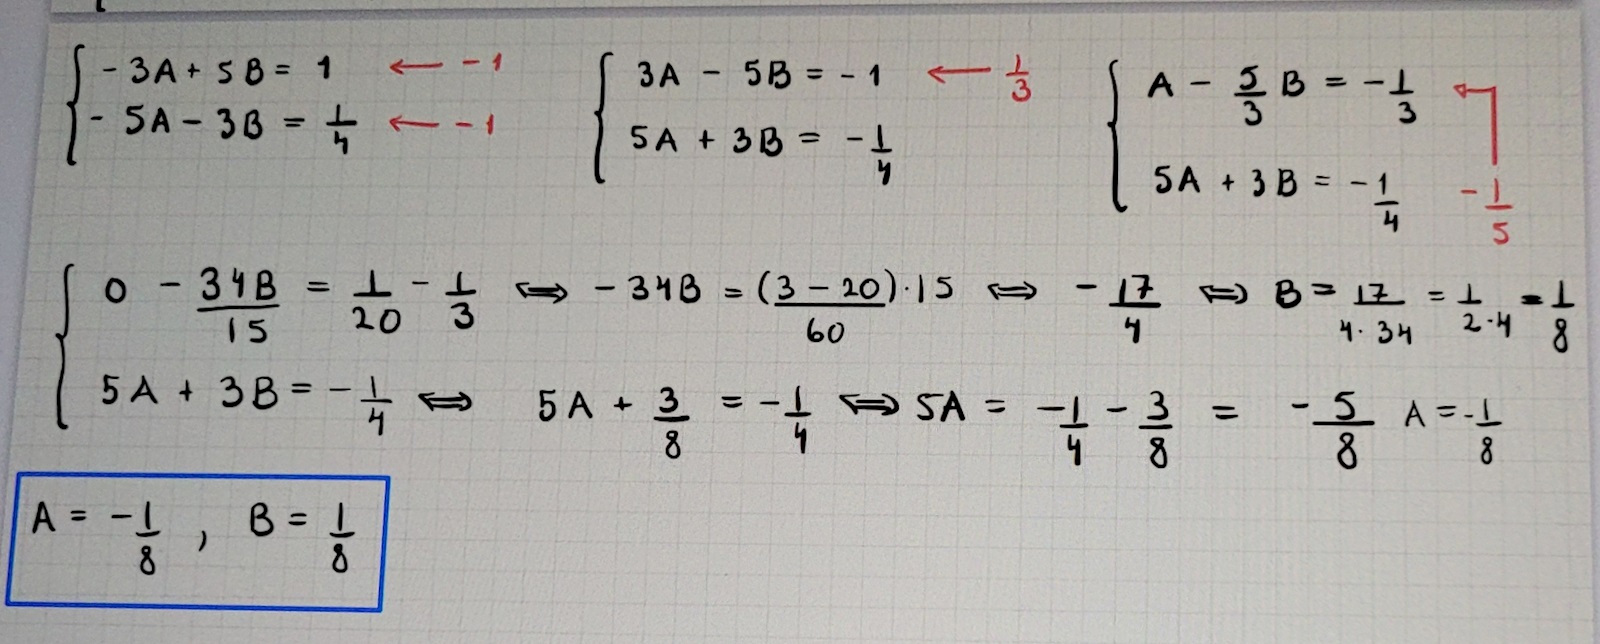 -3A + 5B = 1 ← -1
-5A - 3B = 1/4 ← -1
3A - 5B = -1 ← 1/3
5A + 3B = -1/4
A - 5/3 B = -1/3
5A + 3B = -1/4 -1/5
0 - 34B/15 = 1/20 - 1/3 ⇔ -34B = (3 - 20)·15/60 ⇔ -17/4 ⇔ B = 17/4·34 = 1/2·4 = 1/8
5A + 3B = -1/4 ⇔ 5A + 3/8 = -1/4 ⇔ 5A = -1/4 - 3/8 = -5/8 A = -1/8
A = -1/8 , B = 1/8